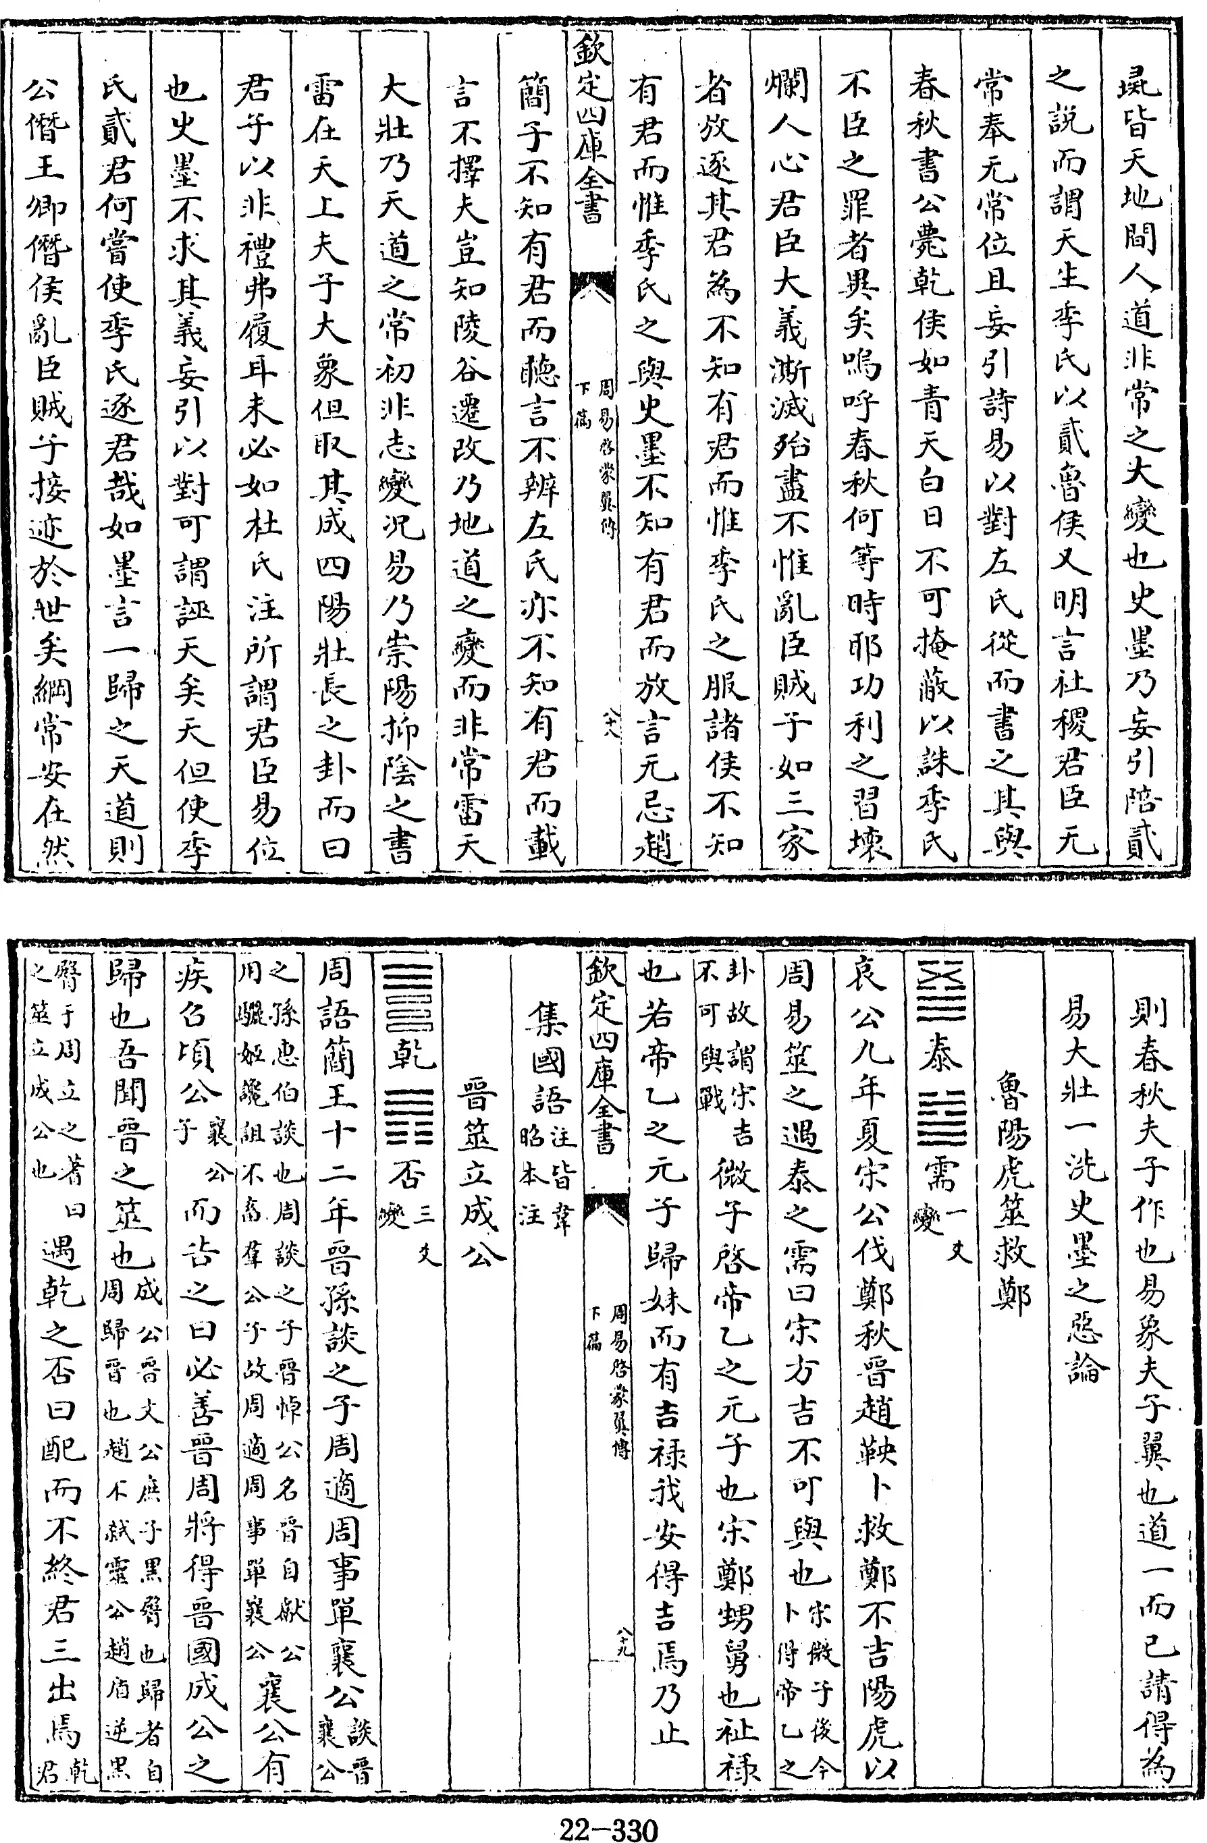 晁皆天地間人道非常之大變也史墨乃妄引陪貳
之説而謂天生季氏以貳魯侯又明言社稷君臣无
常奉无常位且妄引詩易以對左氏從而書之其與
春秋書公薨乾侯如青天白日不可掩蔽以誅季氏
不臣之罪者異矣嗚呼春秋何等時耶功利之習壞
爛人心君臣大義澌滅殆盡不惟亂臣賊子如三家
者放逐其君為不知有君而惟季氏之服諸侯不知
有君而惟季氏之與史墨不知有君而放言无忌趙
欽定四庫全書
周易啓蒙翼傳
下篇
八十八
簡子不知有君而聽言不辨左氏亦不知有君而載
言不擇夫豈知陵谷遷改乃地道之變而非常雷天
大壯乃天道之常初非志變况易乃崇陽抑陰之書
雷在天上夫子大象但取其成四陽壯長之卦而曰
君子以非禮弗履耳未必如杜氏注所謂君臣易位
也史墨不求其義妄引以對可謂誣天矣天但使季
氏貳君何嘗使季氏逐君哉如墨言一歸之天道則
公僭王卿僭侯亂臣賊子接迹於世矣綱常安在然
則春秋夫子作也易象夫子翼也道一而已請得為
易大壯一洗史墨之惡論
魯陽虎筮救鄭
泰 需 一爻變
哀公九年夏宋公伐鄭秋晉趙鞅卜救鄭不吉陽虎以
周易筮之遇泰之需曰宋方吉不可與也宋微子後今卜得帝乙之
卦故謂宋吉不可與戰微子啓帝乙之元子也宋鄭甥舅也祉祿
也若帝乙之元子歸妹而有吉祿我安得吉焉乃止
欽定四庫全書
周易啓蒙翼傳
下篇
八十九
集國語注皆韋昭本注
晉筮立成公
乾 否 三爻變
周語簡王十二年晉孫談之子周適周事單襄公談晉襄公
之孫惠伯談也周談之子晉悼公名晉自獻公用驪姬讒詛不畜羣公子故周適周事單襄公襄公有
疾召頃公襄公子而告之曰必善晉周將得晉國成公之
歸也吾聞晉之筮也成公晉文公庶子黑臀也歸者自周歸晉也趙不弑靈公趙盾逆黑
臀于周立之蓍曰之筮立成公也遇乾之否曰配而不終君三出焉乾君
22-330